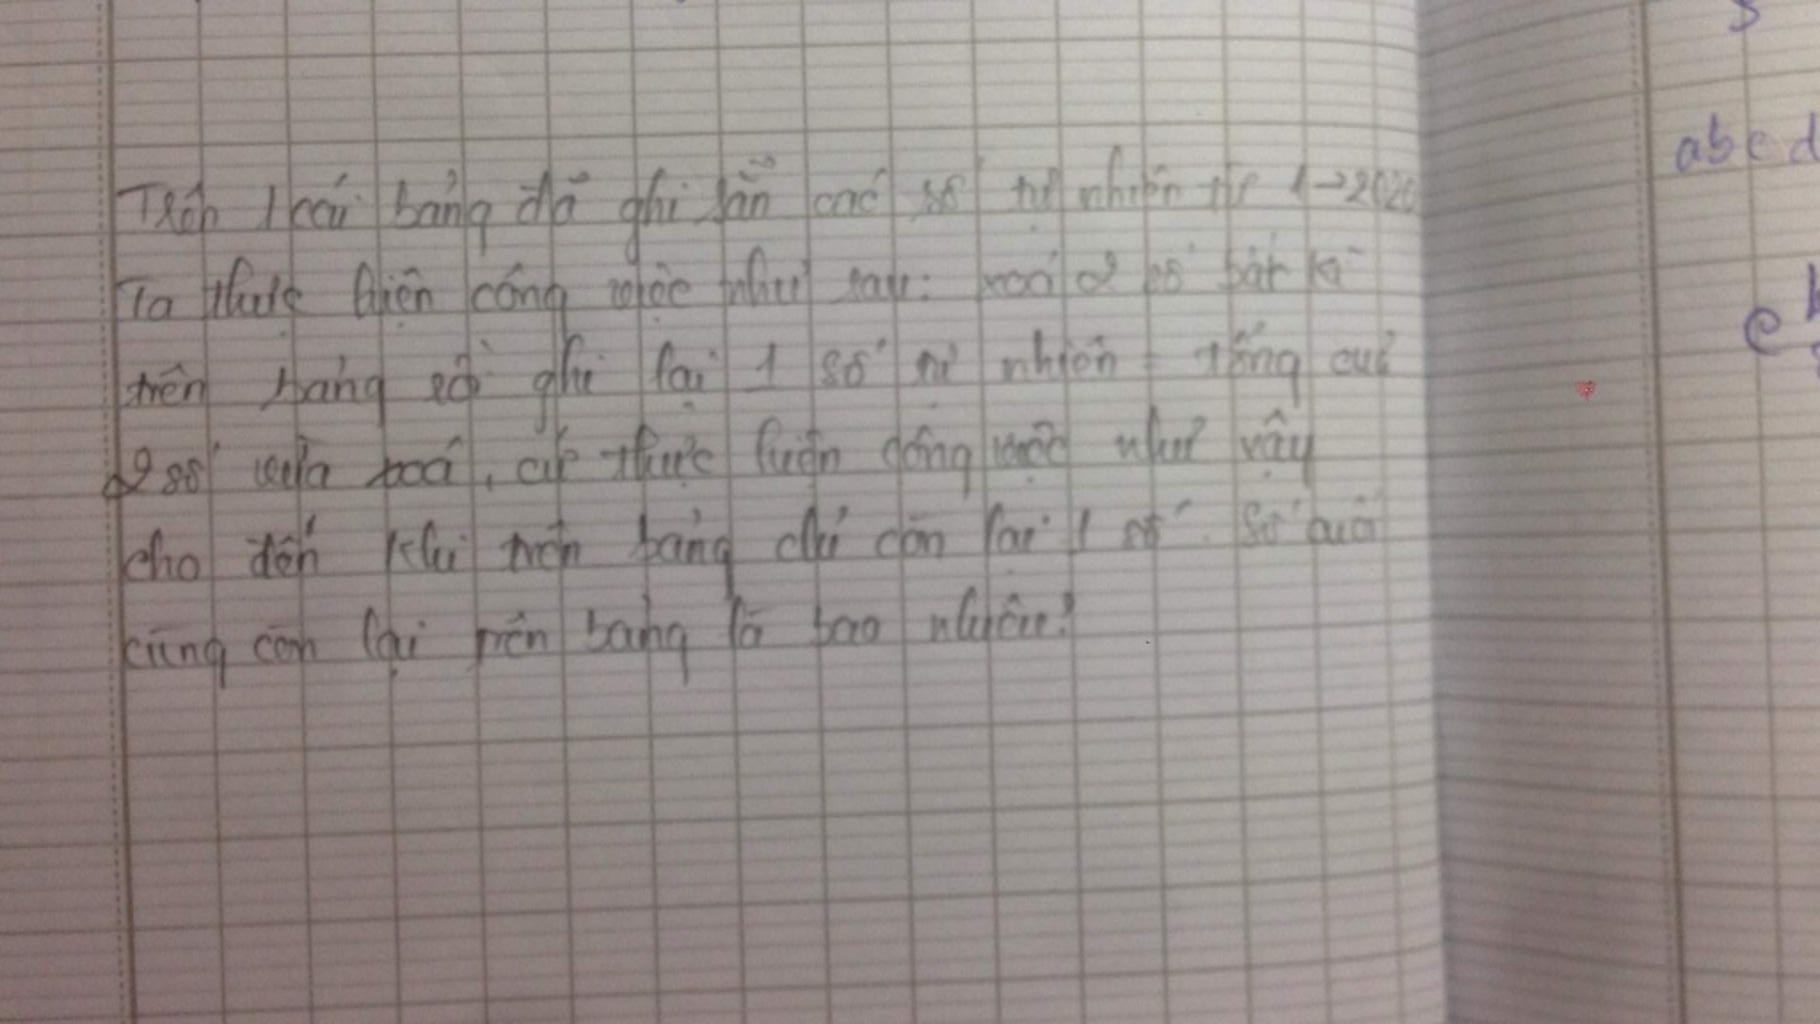 Trên 1 cái bảng đã ghi sẵn các số tự nhiên từ 1→2020
Ta thực hiện công việc như sau: xoá 2 số bất kì
trên bảng rồi ghi lại 1 số tự nhiên = tổng cuả
2 số vừa xoá, cứ thực hiện công việc như vậy
cho đến khi trên bảng chỉ còn lại 1 số. Số cuối
cùng còn lại trên bảng là bao nhiêu?
abcd
e